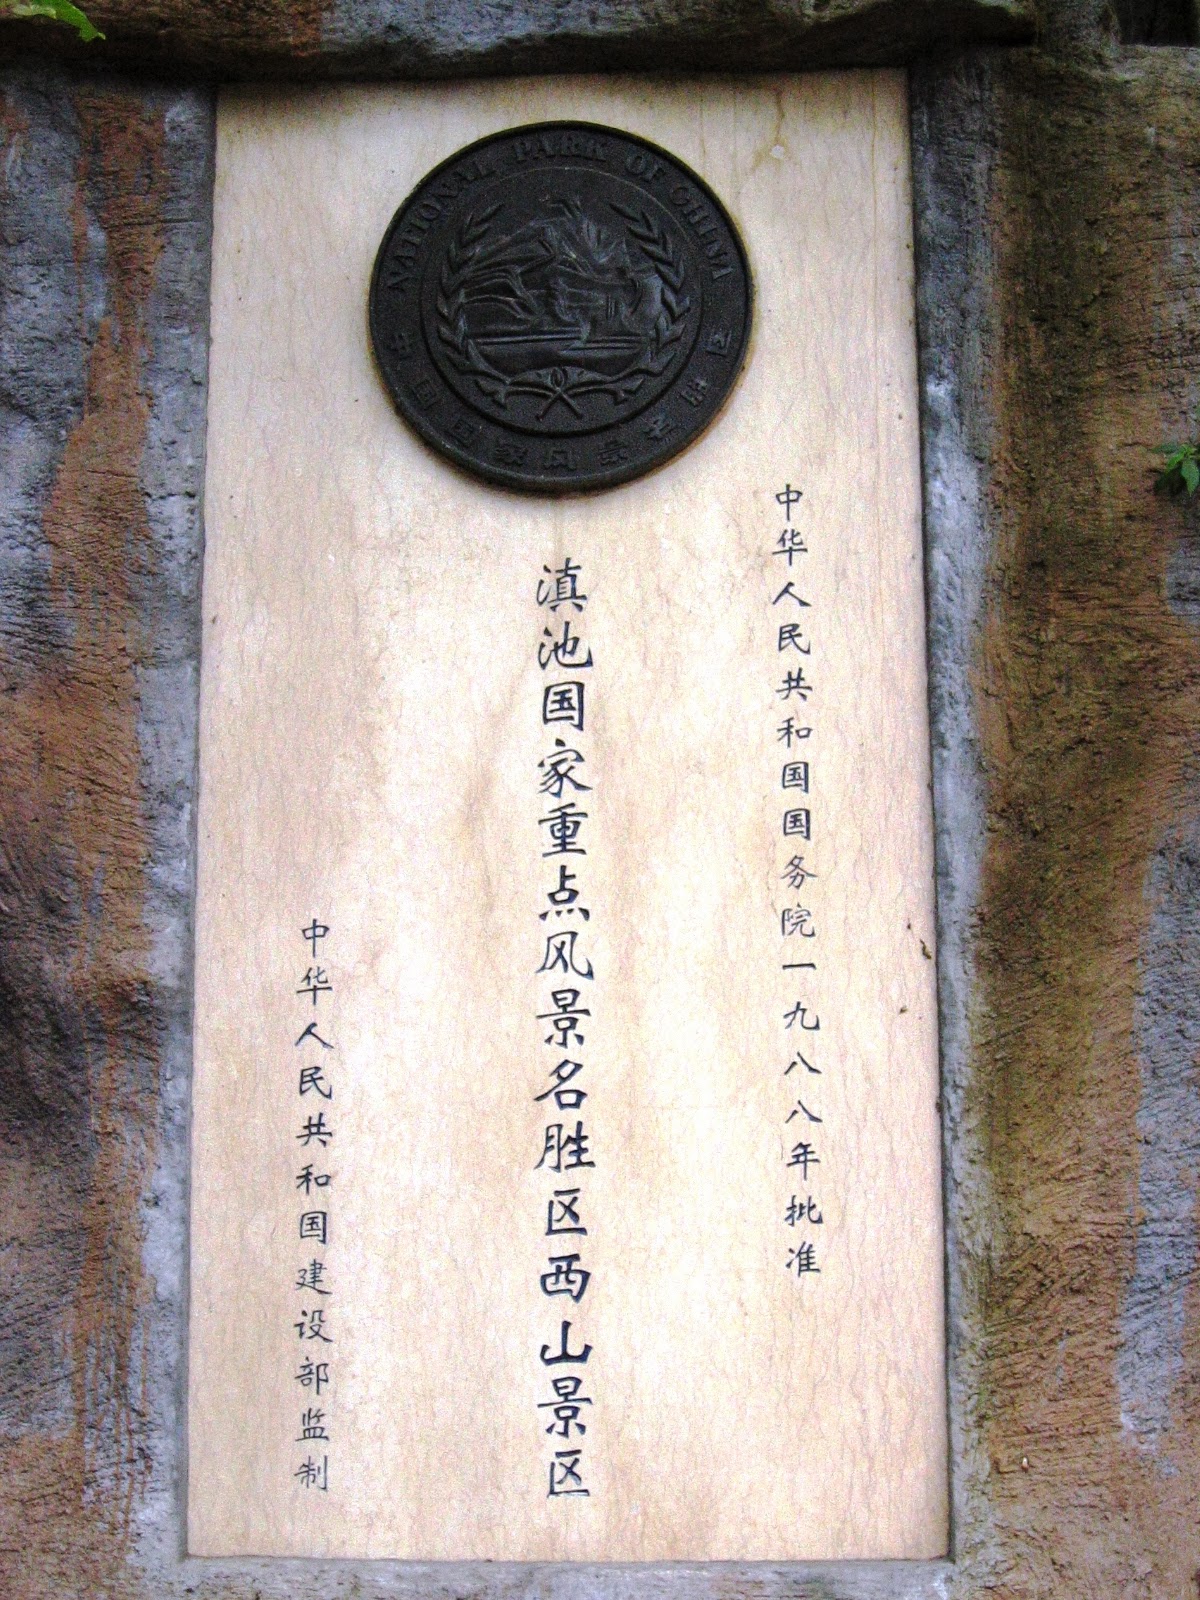 NATIONAL PARK OF CHINA
中国国家风景名胜区
中华人民共和国国务院一九八八年批准
滇池国家重点风景名胜区西山景区
中华人民共和国建设部监制